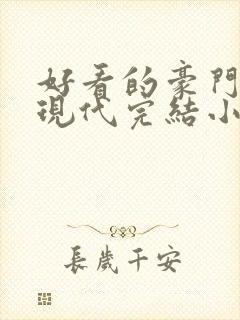 好看的豪門
現代完結小
長歲千安